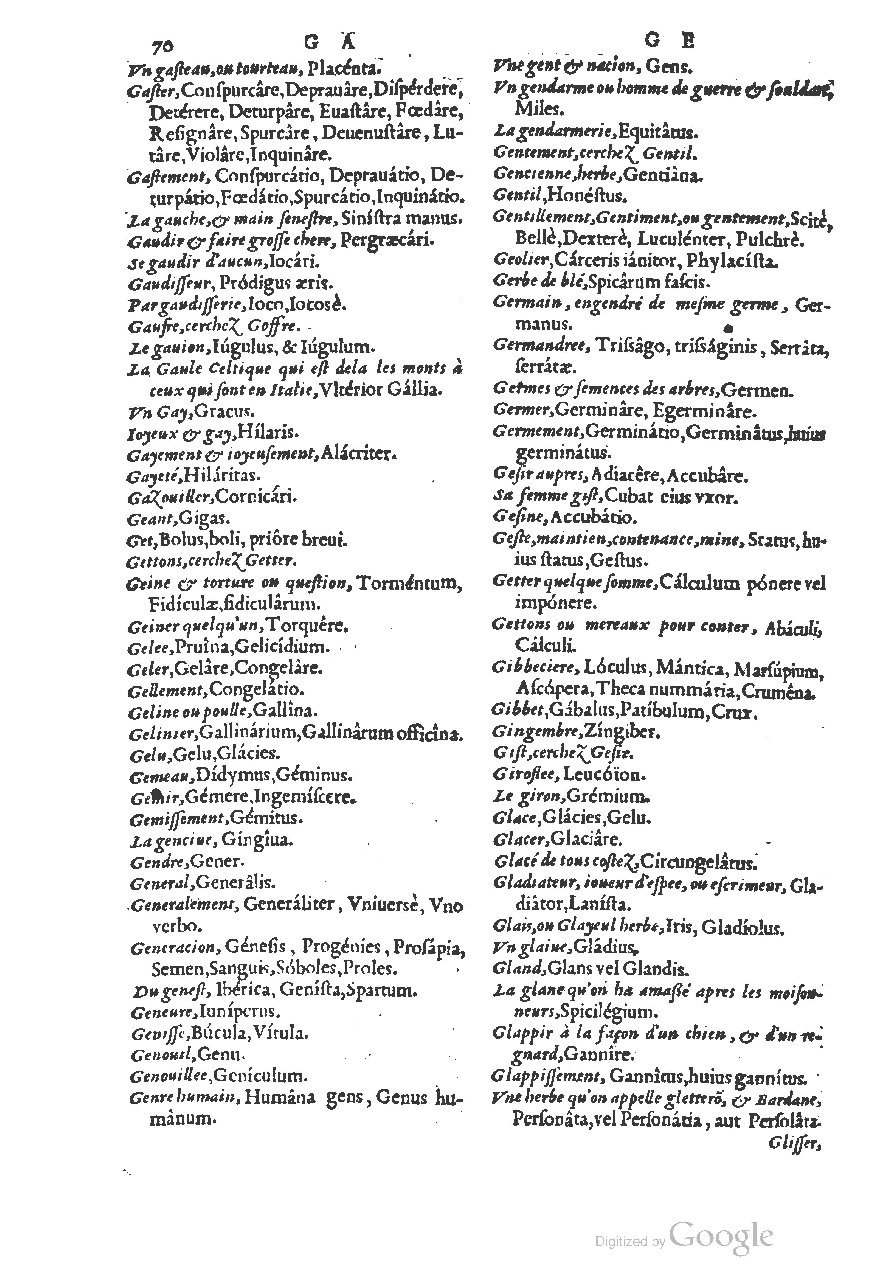 70 G A
Vn gaſteau, ou tourteau, Placénta.
Gaſter, Conſpurcâre, Deprauâre, Diſpérdere,
Detérere, Deturpâre, Euaſtâre, Fœdâre,
Reſignâre, Spurcâre, Deuenuſtâre, Lu-
târe, Violâre, Inquinâre.
Gaſtement, Conſpurcátio, Deprauátio, De-
turpátio, Fœdátio, Spurcátio, Inquinátio.
La gauche, & main ſeneſtre, Siníſtra manus.
Gaudir & faire groſſe chere, Pergræcári.
Se gaudir d'aucun, Iocári.
Gaudiſſeur, Pródigus æris.
Par gaudiſſerie, Ioco, Iocosè.
Gaufre, cerchez Goffre.
Le gauion, Iúgulus, & Iúgulum.
La Gaule Celtique qui eſt dela les monts à
ceux qui ſont en Italie, Vltérior Gállia.
Vn Gay, Gracus.
Ioyeux & gay, Hílaris.
Gayement & ioyeuſement, Alácriter.
Gayeté, Hiláritas.
Gazouiller, Cornicári.
Geant, Gigas.
Get, Bolus, boli, priôre breui.
Gettons, cerchez Getter.
Geine & torture ou queſtion, Torméntum,
Fidículæ, fidiculârum.
Geiner quelqu'un, Torquêre.
Gelee, Pruîna, Gelicídium.
Geler, Gelâre, Congelâre.
Gellement, Congelátio.
Geline ou poulle, Gallîna.
Gelinier, Gallinárium, Gallinârum officîna.
Gelu, Gelu, Glácies.
Gemeau, Dídymus, Géminus.
Gemir, Gémere, Ingemíſcere.
Gemiſſement, Gémitus.
La genciue, Gingîua.
Gendre, Gener.
General, Generâlis.
Generalement, Generáliter, Vniuersè, Vno
verbo.
Generacion, Géneſis, Progénies, Proſápia,
Semen, Sanguis, Sóboles, Proles.
Du geneſt, Ibérica, Geníſta, Spartum.
Geneure, Iuníperus.
Geniſſe, Búcula, Vítula.
Genouil, Genu.
Genouillee, Genículum.
Genre humain, Humâna gens, Genus hu-
mânum.
G E
Vne gent & nacion, Gens.
Vn gendarme ou homme de guerre & ſouldart,
Miles.
La gendarmerie, Equitâtus.
Gentement, cerchez Gentil.
Gencienne, herbe, Gentiâna.
Gentil, Honéſtus.
Gentillement, Gentiment, ou gentement, Scitè,
Bellè, Dexterè, Luculénter, Pulchrè.
Geolier, Cárceris iánitor, Phylacíſta.
Gerbe de blé, Spicârum faſcis.
Germain, engendré de meſme germe, Ger-
manus.
Germandree, Triſsâgo, triſságinis, Serrâta,
ſerrátæ.
Germes & ſemences des arbres, Germen.
Germer, Germinâre, Egerminâre.
Germement, Germinátio, Germinâtus, huius
germinátus.
Geſir aupres, Adiacêre, Accubâre.
Sa femme giſt, Cubat eius vxor.
Geſine, Accubátio.
Geſte, maintien, contenance, mine, Status, hu-
ius ſtatus, Geſtus.
Getter quelque ſomme, Cálculum pónere vel
impónere.
Gettons ou mereaux pour conter, Abáculi,
Cálculi.
Gibbeciere, Lóculus, Mántica, Marſúpium,
Aſcópera, Theca nummária, Crumêna.
Gibbet, Gábalus, Patíbulum, Crux.
Gingembre, Zíngiber.
Giſt, cerchez Geſir.
Giroflee, Leucóïon.
Le giron, Grémium.
Glace, Glácies, Gelu.
Glacer, Glaciâre.
Glacé de tous coſtez, Circungelâtus.
Gladiateur, ioueur d'eſpee, ou eſcrimeur, Gla-
diâtor, Laníſta.
Glais, ou Glayeul herbe, Iris, Gladíolus.
Vn glaiue, Gládius.
Gland, Glans vel Glandis.
La glane qu'on ha amaſſé apres les moiſon-
neurs, Spicilégium.
Glappir à la façon d'un chien, & d'un re-
gnard, Gannîre.
Glappiſſement, Gannîtus, huius gannítus.
Vne herbe qu'on appelle gletterõ, & Bardane,
Perſonâta, vel Perſonátia, aut Perſolâta.
Gliſſer,
Digitized by Google